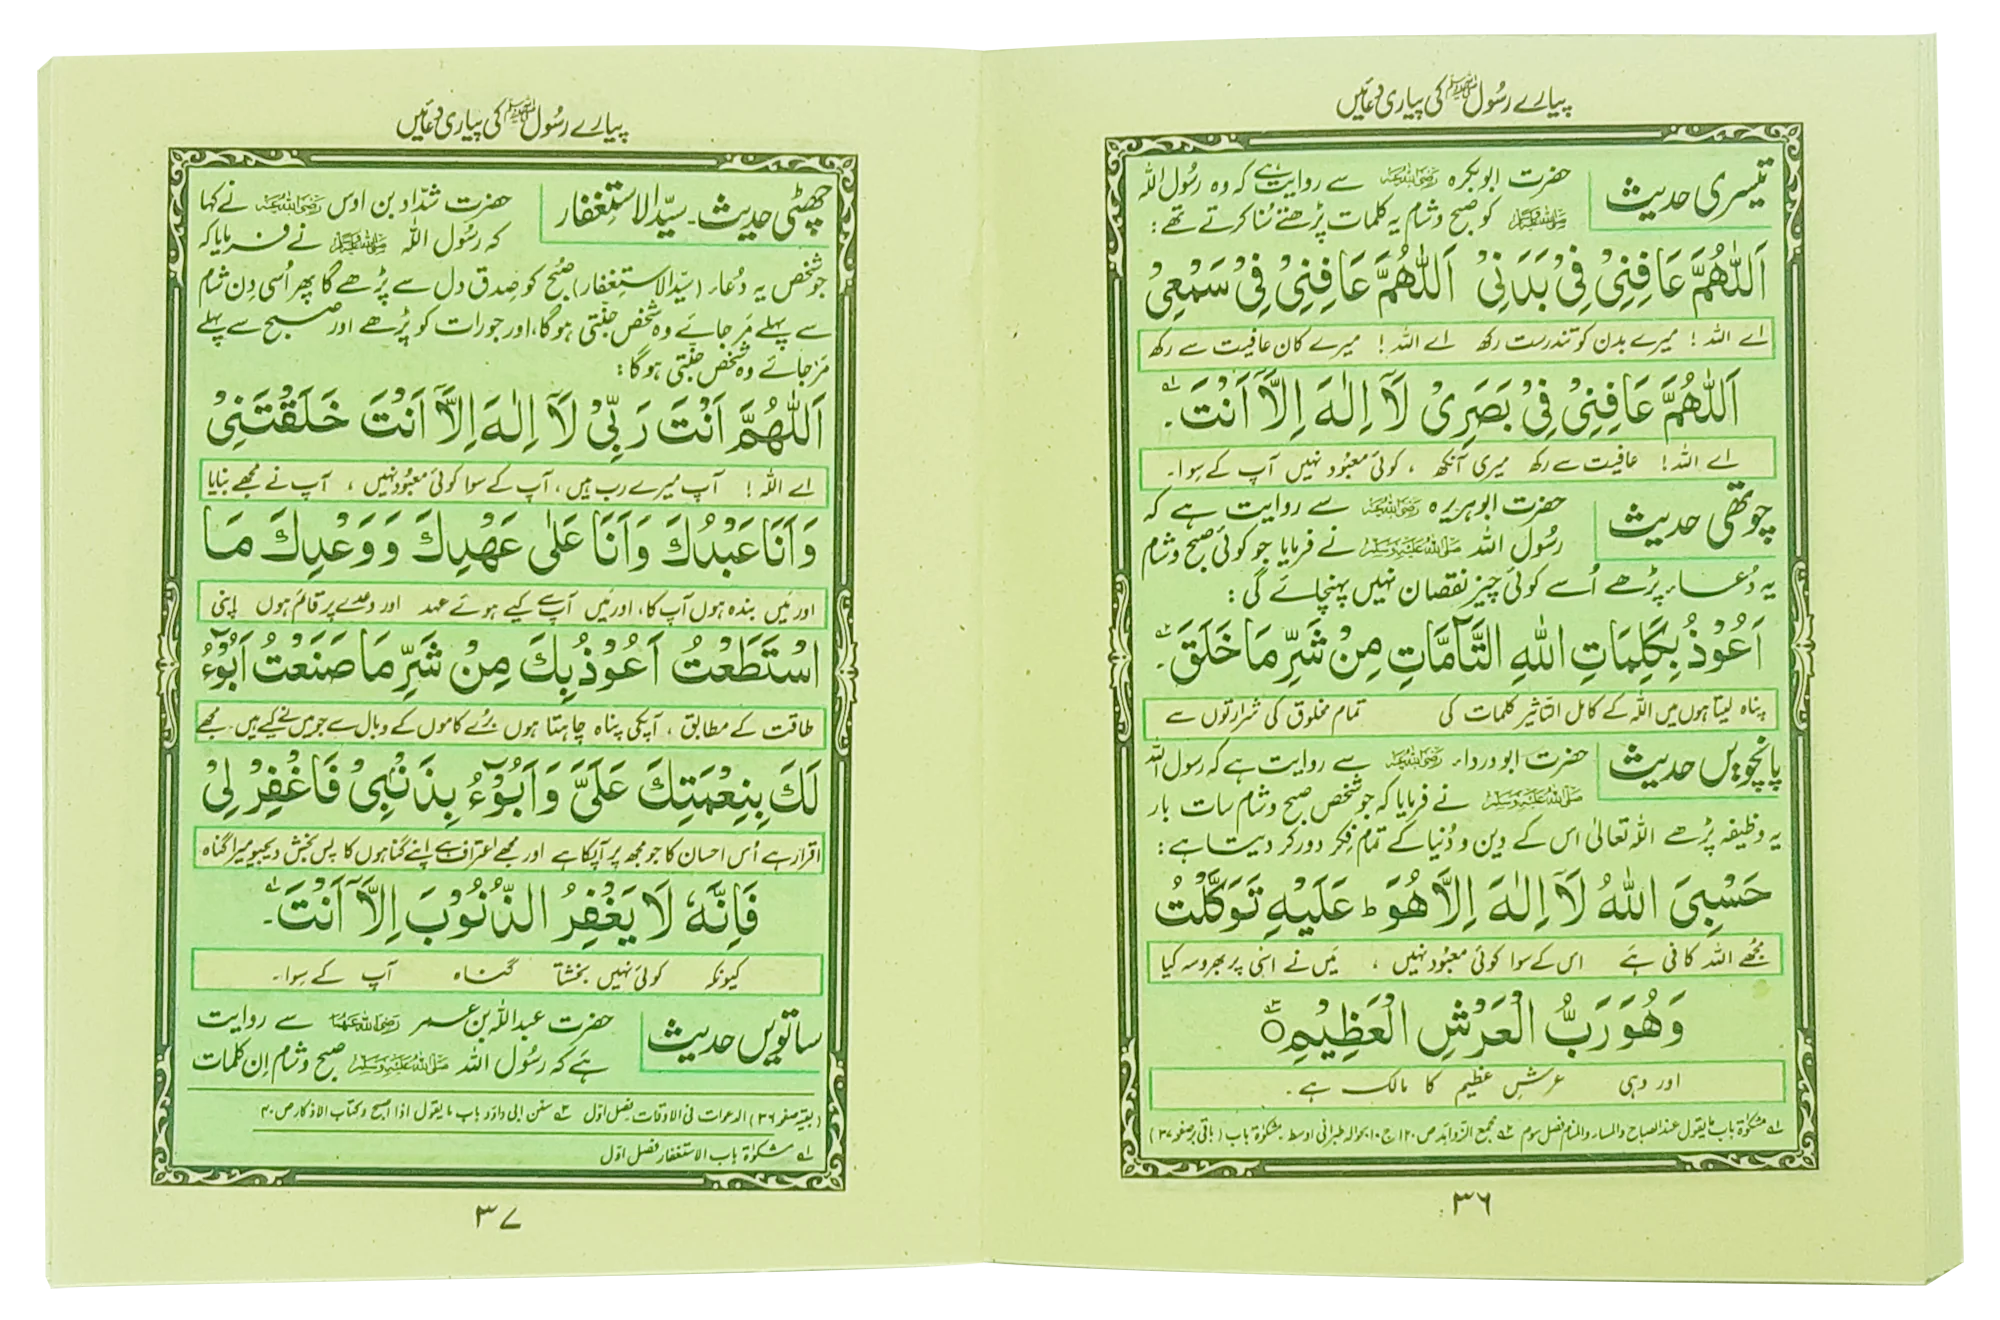 پیارے رسُول ﷺ کی پیاری دُعائیں
تیسری حدیث
حضرت ابوبکرہ رضی اللہ عنہ سے روایت ہے کہ وہ رسُول اللہ
صلی اللہ علیہ وسلم کو صبح و شام یہ کلمات پڑھتے سُنا کرتے تھے:
اَللّٰهُمَّ عَافِنِیْ فِیْ بَدَنِیْ اَللّٰهُمَّ عَافِنِیْ فِیْ سَمْعِیْ
اے اللہ! میرے بدن کو تندرست رکھ اے اللہ! میرے کان عافیت سے رکھ
اَللّٰهُمَّ عَافِنِیْ فِیْ بَصَرِیْ لَآ اِلٰهَ اِلَّآ اَنْتَ۔ ١؎
اے اللہ! عافیت سے رکھ میری آنکھ ، کوئی معبُود نہیں آپ کے سِوا۔
چوتھی حدیث
حضرت ابوہریرہ رضی اللہ عنہ سے روایت ہے کہ
رسُول اللہ صلی اللہ علیہ وسلم نے فرمایا جو کوئی صبح و شام
یہ دُعاء پڑھے اُسے کوئی چیز نقصان نہیں پہنچائے گی:
اَعُوْذُ بِکَلِمَاتِ اللّٰهِ التَّآمَّاتِ مِنْ شَرِّ مَا خَلَقَ۔ ٢؎
پناہ لیتا ہوں میں اللہ کے کامل التاثیر کلمات کی تمام مخلوق کی شرارتوں سے
پانچویں حدیث
حضرت ابودرداء رضی اللہ عنہ سے روایت ہے کہ رسول اللہ
صلی اللہ علیہ وسلم نے فرمایا کہ جو شخص صبح و شام سات بار
یہ وظیفہ پڑھے اللہ تعالیٰ اس کے دین و دُنیا کے تمام فِکر دور کر دیتا ہے:
حَسْبِیَ اللّٰهُ لَآ اِلٰهَ اِلَّا هُوَ ط عَلَیْهِ تَوَکَّلْتُ
مجُھے اللہ کافی ہے اس کے سوا کوئی معبُود نہیں ، مَیں نے اسی پر بھروسہ کیا
وَهُوَ رَبُّ الْعَرْشِ الْعَظِیْمِ ○ ٣؎
اور وہی عرشِ عظیم کا مالک ہے۔
١؎ مشکوٰة باب ما یقول عند الصباح والمساء والمنام فصل سوم ٢؎ مجمع الزوائد ص ١٢٠ ج ١٠ بحوالہ طبرانی اوسط۔ مشکوٰة باب (باقی برصفحہ ٣٧)
٣٦
پیارے رسُول ﷺ کی پیاری دُعائیں
چھٹی حدیث۔ سیّد الاستغفار
حضرت شدّاد بن اوس رضی اللہ عنہ نے کہا
کہ رسُول اللہ صلی اللہ علیہ وسلم نے فرمایا کہ
جو شخص یہ دُعاء (سیّد الاستغفار) صُبح کو صِدق دل سے پڑھے گا پھر اُسی دِن شام
سے پہلے مَر جائے وہ شخص جنّتی ہوگا، اور جو رات کو پڑھے اور صبح سے پہلے
مَر جائے وہ شخص جنّتی ہوگا:
اَللّٰهُمَّ اَنْتَ رَبِّیْ لَآ اِلٰهَ اِلَّآ اَنْتَ خَلَقْتَنِیْ
اے اللہ! آپ میرے رب ہیں، آپ کے سوا کوئی معبُود نہیں ، آپ نے مجھے بنایا
وَاَنَا عَبْدُكَ وَاَنَا عَلٰی عَهْدِكَ وَوَعْدِكَ مَا
اور مَیں بندہ ہوں آپ کا، اور مَیں آپ سے کیے ہوئے عہد اور وعدے پر قائم ہوں اپنی
اسْتَطَعْتُ اَعُوْذُ بِكَ مِنْ شَرِّ مَا صَنَعْتُ اَبُوْٓءُ
طاقت کے مطابق ، آپکی پناہ چاہتا ہوں بُرے کاموں کے وبال سے جو میں نے کیے ہیں۔ مجھے
لَكَ بِنِعْمَتِكَ عَلَیَّ وَاَبُوْٓءُ بِذَنْبِیْ فَاغْفِرْ لِیْ
اقرار ہے اُس احسان کا جو مجھ پر آپکا ہے اور مجھے اعتراف ہے اپنے گناہوں کا پس بخش دیجیو میرا گناہ
فَاِنَّهٗ لَا یَغْفِرُ الذُّنُوْبَ اِلَّآ اَنْتَ۔ ١؎
کیونکہ کوئی نہیں بخشتا گناہ آپ کے سِوا۔
ساتویں حدیث
حضرت عبداللہ بن عمر رضی اللہ عنہما سے روایت
ہے کہ رسُول اللہ صلی اللہ علیہ وسلم صبح و شام اِن کلمات
(بقیہ صفحہ ٣٦) الدعوات فی الاوقات فصل اوّل ٣؎ سنن ابی داؤد باب ما یقول اذا اصبح و کتاب الاذکار ص ٤٠
١؎ مشکوٰة باب الاستغفار فصل اوّل
٣٧